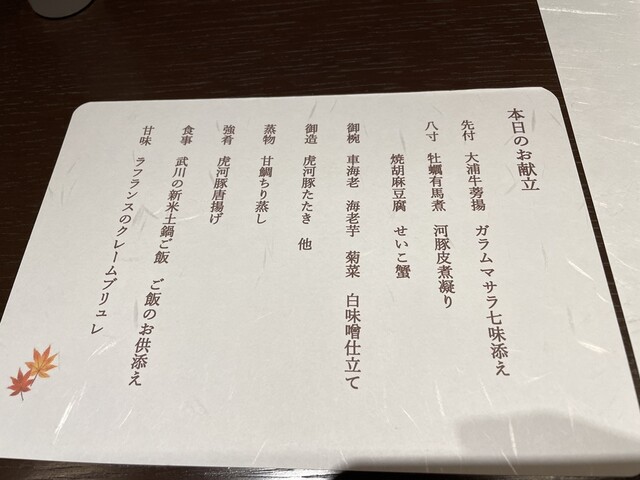 本日のお献立
先付 大浦牛蒡揚 ガラムマサラ七味添え
八寸 牡蠣有馬煮 河豚皮煮凝り
焼胡麻豆腐 せいこ蟹
御椀 車海老 海老芋 菊菜 白味噌仕立て
御造 虎河豚たたき 他
蒸物 甘鯛ちり蒸し
強肴 虎河豚唐揚げ
食事 武川の新米土鍋ご飯 ご飯のお供添え
甘味 ラフランスのクレームブリュレ